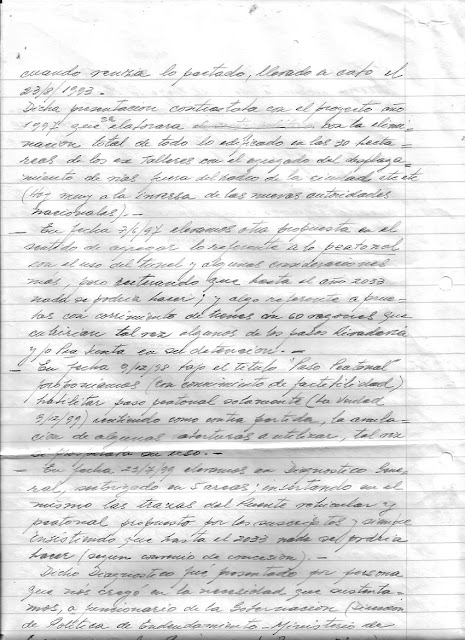 cuando vencia lo pactado, llevado a cabo el
23/8/1993.
Dicha presentacion contrastaba con el proyecto año
1997 que se elaborara con la elimi-
nacion total de todo lo edificado en las 30 hecta-
reas de los ex talleres con el agregado del desplaza-
miento de vias fuera del radio de la ciudad etc etc
(hoy muy a la inversa de las nuevas autoridades
nacionales). -
- En fecha 7/5/97 elevamos otra propuesta en el
sentido de agregar lo referente a lo peatonal
con el uso del tunel y algunas consideraciones
más, pero reiterando que hasta el año 2033
nada se podria hacer; y algo referente a prue-
bas con corrimiento de trenes con 60 vagones que
cubririan tal vez algunos de los pasos Rivadavia
y/o en su detencion. -
- En fecha 9/12/98 bajo el titulo "Paso Peatonal"
proponiamos (con conocimiento de factibilidad)
habilitar paso peatonal solamente (La Verdad
3/12/99) recibiendo como contra partida, la anula-
cion de algunas aberturas a utilizar, tal vez
se su uso. -
- En fecha 23/7/99 elevamos un Diagnostico Gene-
ral, autorizado en 5 areas; insertando en el
mismo las trazas del Puente vehicular y
peatonal propuesto por los suscriptos y siempre
insistiendo que hasta el 2033 nada se podria
hacer (segun convenio de concesion). -
Dicho Diagnostico fué presentado por persona
que nos creyó en la necesidad que sustenta-
mos, a funcionario de la Gobernacion (Direccion
de Politica de Endeudamiento - Ministerio de